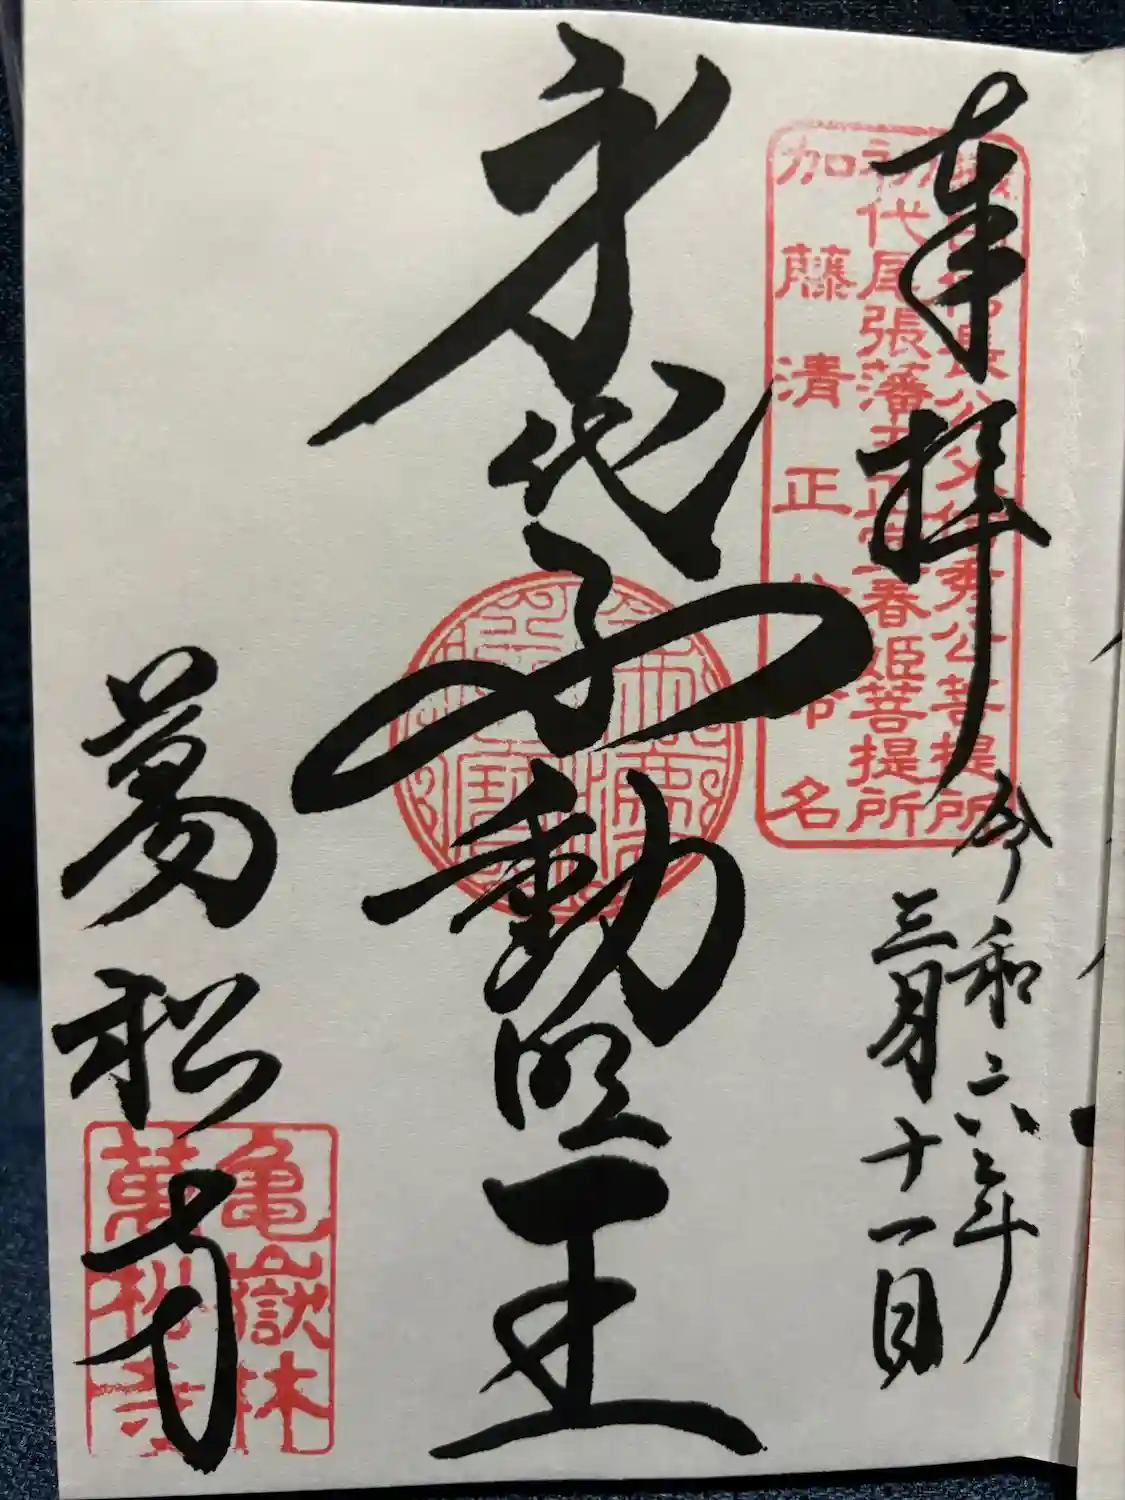 奉拝
令和六年
三月十一日
織田信長公父信秀公菩提所
初代尾張藩主正室春姫菩提所
加藤清正公名
身代不動明王
萬松寺
亀嶽林
萬松寺